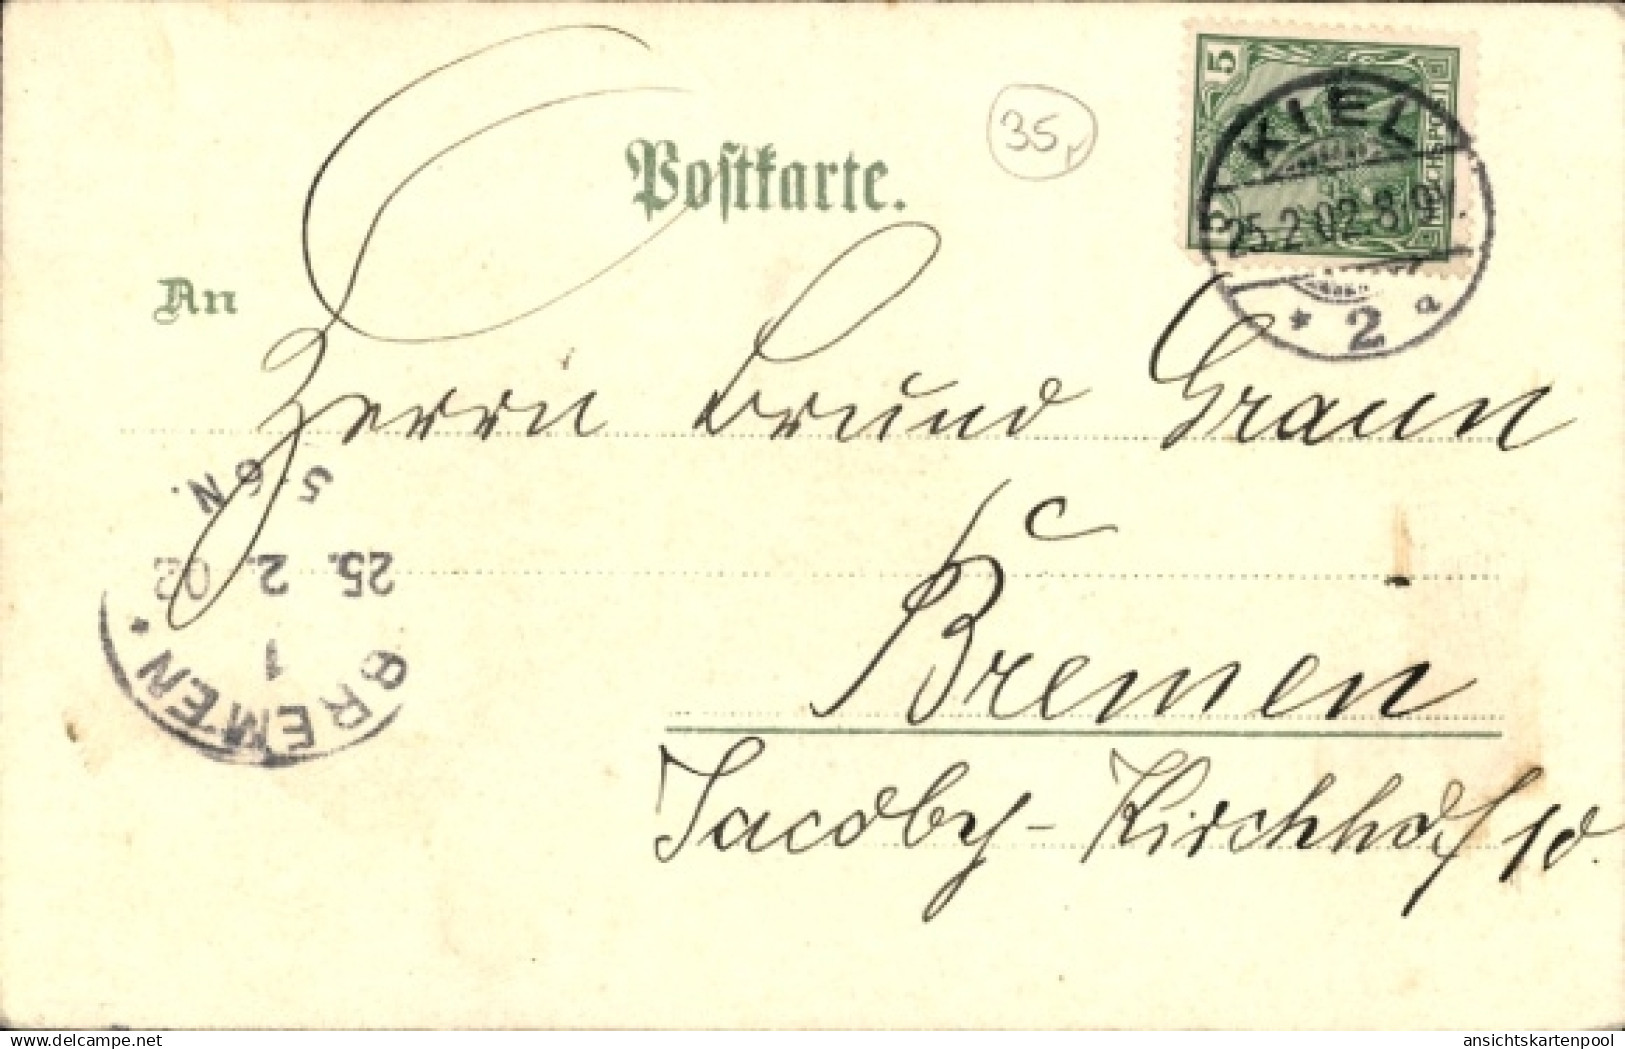 Postkarte.
35,
5
REICHSPOST
KIEL
25.2.02.8-9V.
* 2 a
An
Herrn Bruno Graun
5-6N.
25. 2. 02
1
BREMEN *
Bremen
Jacoby-Kirchhof 10.
www.delcampe.net
ansichtskartenpool